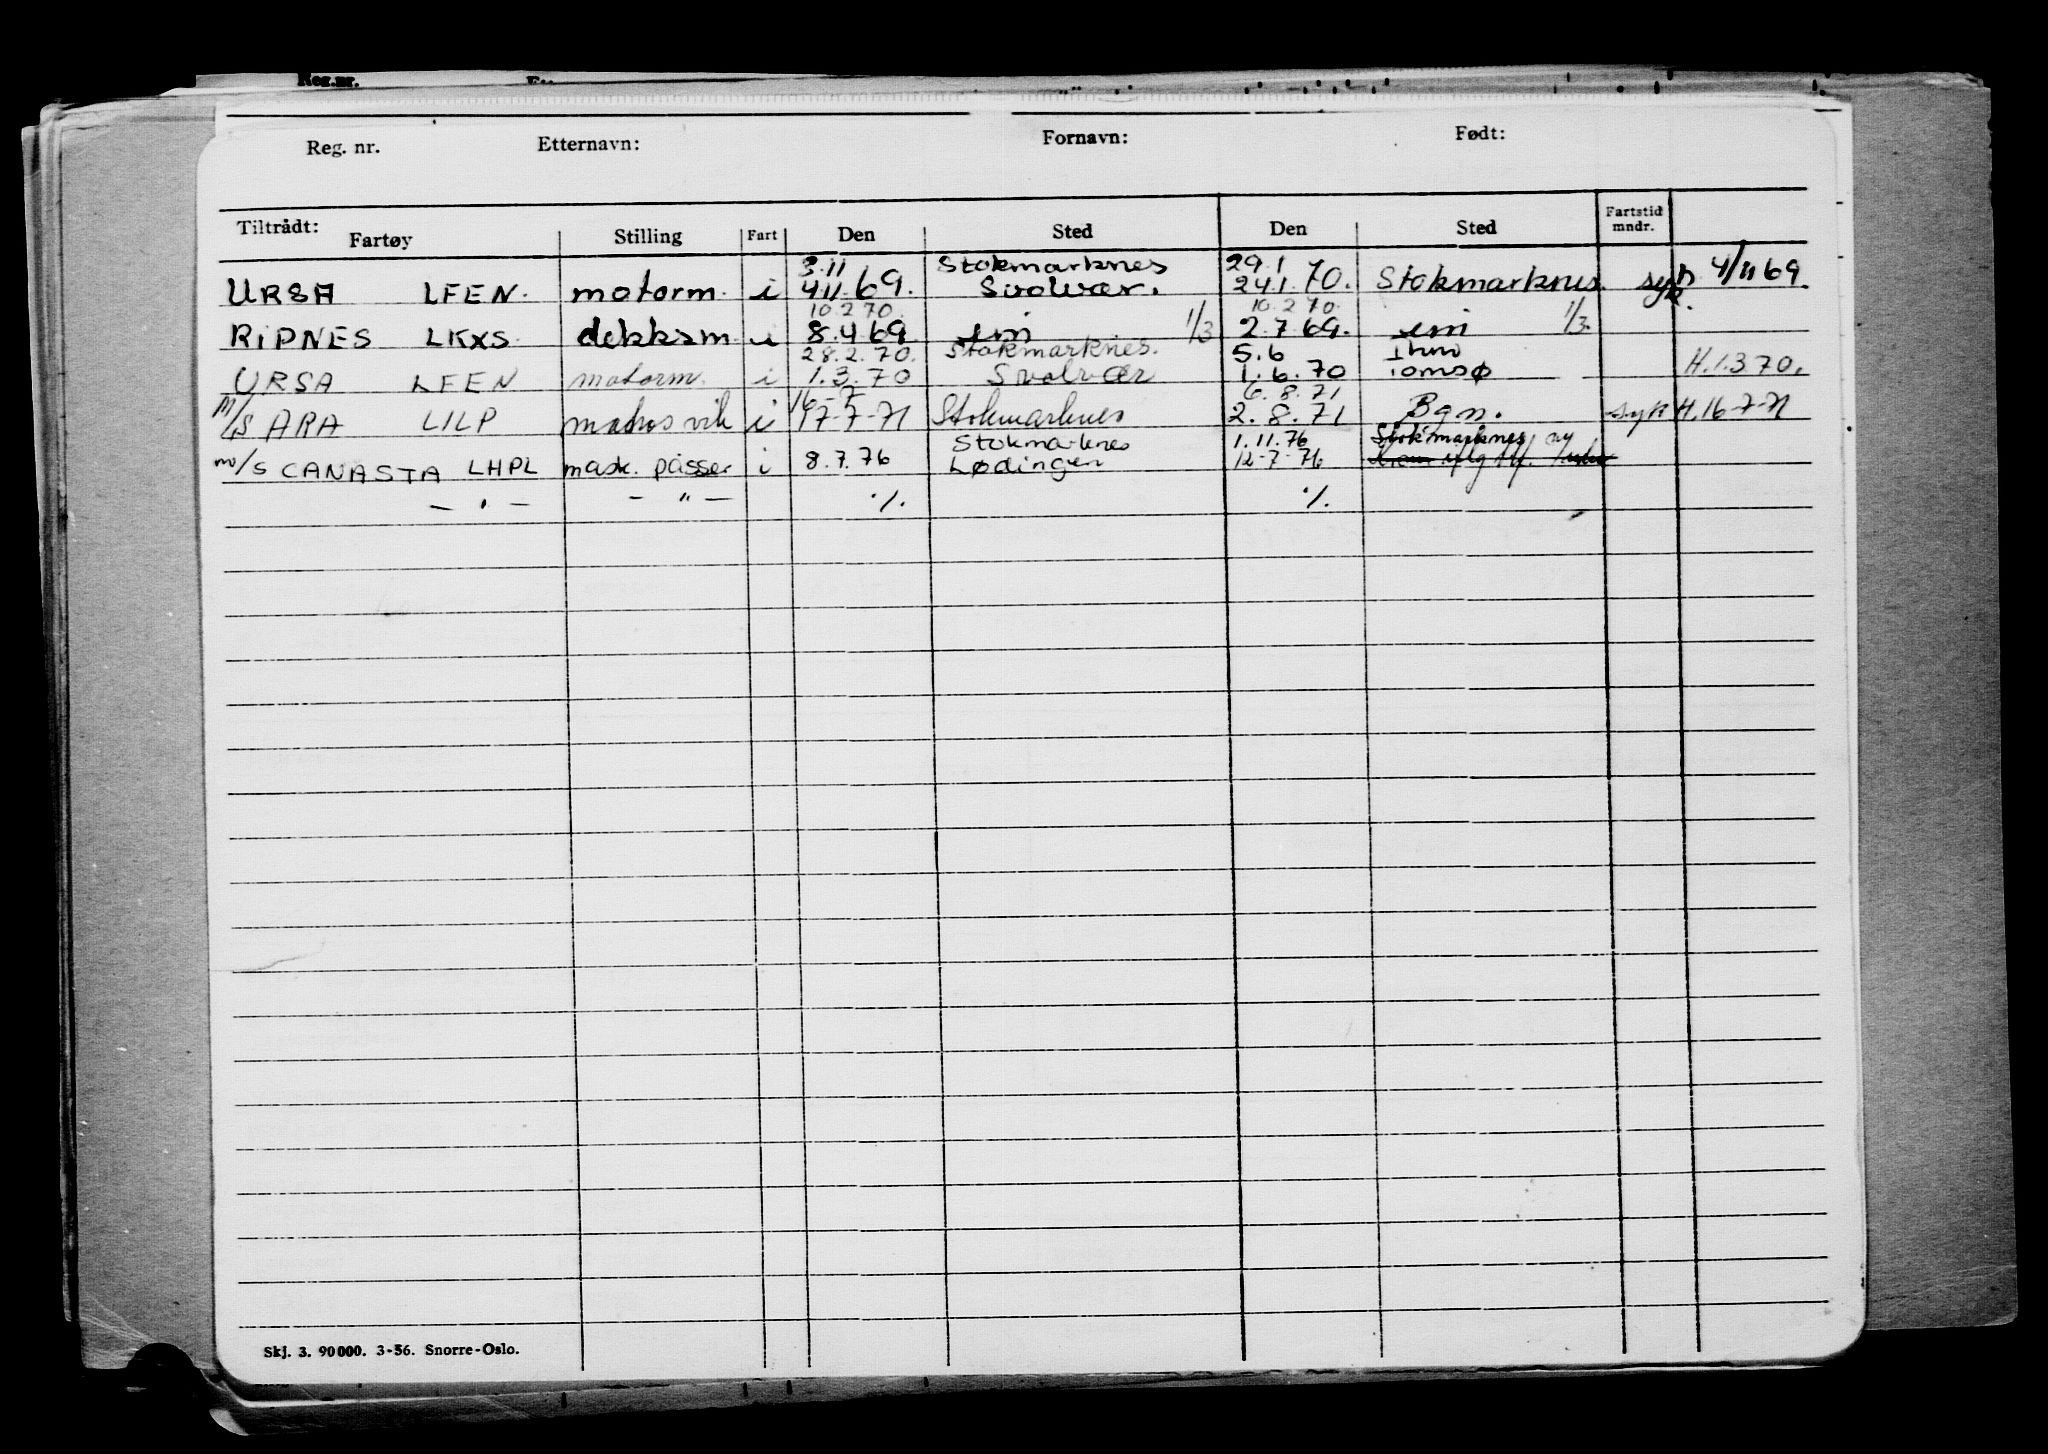 Reg. nr. Etternavn: Fornavn: Født:
Tiltrådt: Fartøy Stilling Fart Den Sted Den Sted Fartstid mndr.
3.11 Stokmarknes 29.1
URSA LFEN. motorm. i 4.11.69. Svolvær. 24.1.70. Stokmarknes. syk 4/11 69.
10.2.70. 10.2.70.
RIPNES LKXS. dekksm i 8.4.69 1/3 2.7.69. 1/3.
28.2.70. Stokmarknes. 5.6
URSA LFEN motorm. i 1.3.70 Svolvær 1.6.70 Tomsø H.1.3.70.
16-7- 6.8.71
M/S ARA LILP matros vik i 17-7-71 Stokmarknes 2.8.71 Bgn. syk H.16-7-71
Stokmarknes 1.11.76 Stokmarknes
m/S CANASTA LHPL mask. passer i 8.7.76 Lødingen 12-7-76 iflg
— " — — " — ./. ./.
Skj. 3. 90000. 3-56. Snorre-Oslo.